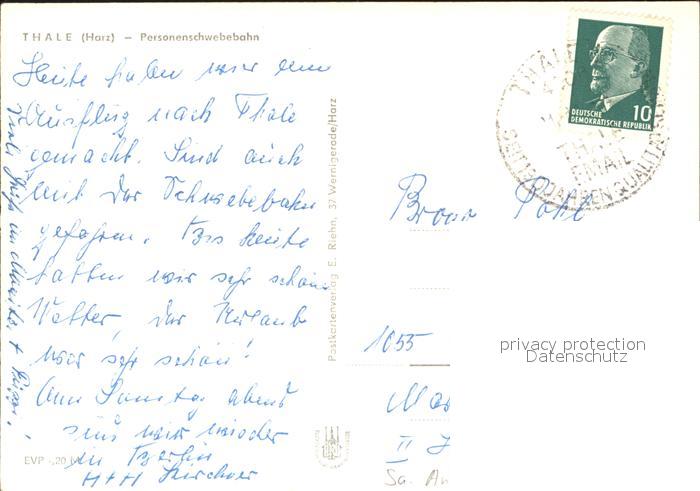 THALE (Harz) – Personenschwebebahn
Heute haben wir ein
Ausflug nach Thale
gemacht. Sind auch
mit der Schwebebahn
gefahren. Bis heute
hatten wir sehr schön
Wetter, der Urlaub
war sehr schön!
Am Samstag abend
sind wir wieder
in Berlin
H + H Kirchner
Viele Grüße
EVP -,20 M
Postkartenverlag E. Riehn, 37 Wernigerode/Harz
DEUTSCHE
DEMOKRATISCHE REPUBLIK
10
THALE
THALE
EMAIL
SEIT JAHREN QUALITÄT
Pohl
1055
privacy protection
Datenschutz
II